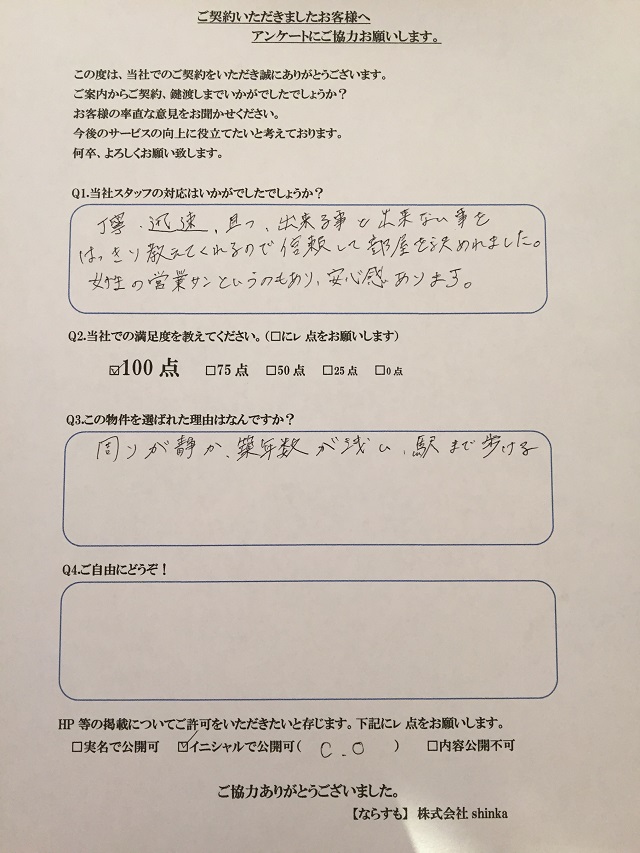 ご契約いただきましたお客様へ
アンケートにご協力お願いします。
この度は、当社でのご契約をいただき誠にありがとうございます。
ご案内からご契約、鍵渡しまでいかがでしたでしょうか？
お客様の率直な意見をお聞かせください。
今後のサービスの向上に役立てたいと考えております。
何卒、よろしくお願い致します。
Q1.当社スタッフの対応はいかがでしたでしょうか？
丁寧・迅速、且つ、出来る事と出来ない事を
はっきり教えてくれるので信頼して部屋を決めれました。
女性の営業サンというのもあり、安心感あります。
Q2.当社での満足度を教えてください。（□にレ点をお願いします）
☑100点 □75点 □50点 □25点 □0点
Q3.この物件を選ばれた理由はなんですか？
周りが静か、築年数が浅い、駅まで歩ける
Q4.ご自由にどうぞ！
HP等の掲載についてご許可をいただきたいと存じます。下記にレ点をお願いします。
□実名で公開可 ☑イニシャルで公開可（ C.O ） □内容公開不可
ご協力ありがとうございました。
【ならすも】株式会社shinka